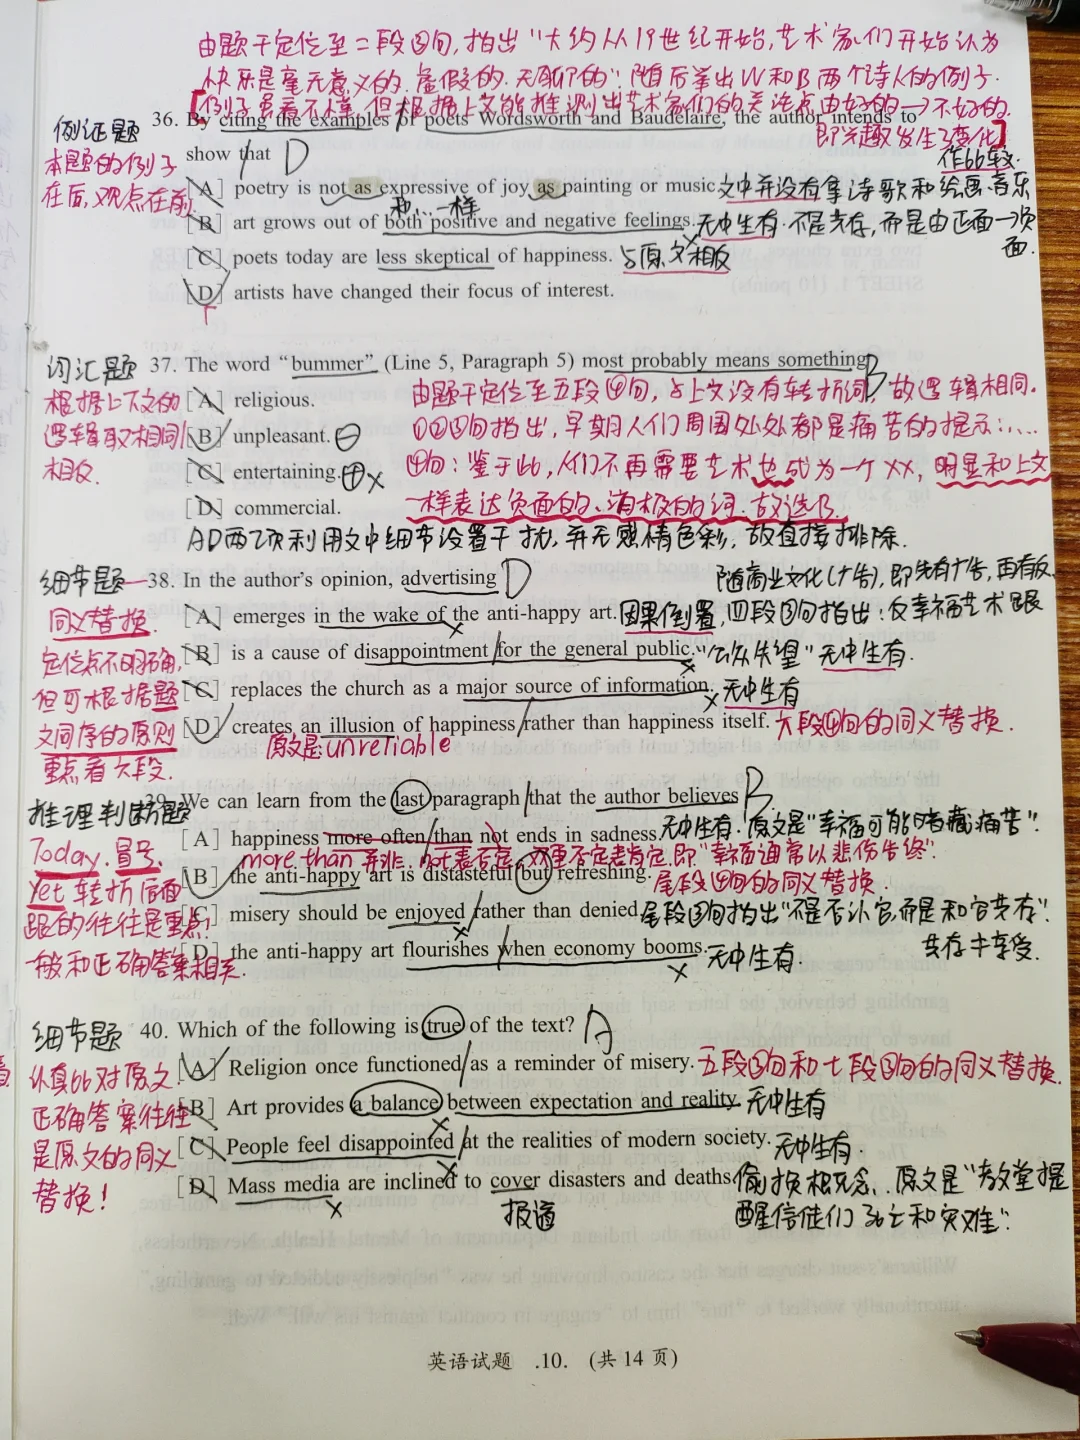 由题干定位至二段③句,指出"大约从19世纪开始,艺术家们开始认为
快乐是毫无意义的、虚假的、无聊的",随后举出W和B两个诗人的例子.
例子里看不懂,但根据上文能推测出艺术家们的关注点由好的→不好的.
即兴趣发生了变化
例证题
本题的例子
在后,观点在前
36. By citing the examples of poets Wordsworth and Baudelaire, the author intends to
show that D
作比较.
[A] poetry is not as expressive of joy as painting or music. 文中并没有拿诗歌和绘画、音乐
和…一样
[B] art grows out of both positive and negative feelings. 无中生有.不是共存,而是由正面→负
面.
[C] poets today are less skeptical of happiness. 与原文相反
[D] artists have changed their focus of interest.
词汇题
根据上下文的
逻辑取相同/
相反.
37. The word "bummer" (Line 5, Paragraph 5) most probably means something B
[A] religious. 由题干定位至五段④句,与上文没有转折词,故逻辑相同.
[B] unpleasant. ⊖ ①②③句指出,早期人们周围处处都是痛苦的提示……
[C] entertaining. ⊕ x ④句:鉴于此,人们不再需要艺术也成为一个XX,明显和上文
[D] commercial. 一样表达负面的、消极的词.故选B.
AD两项利用文中细节设置干扰,并无感情色彩,故直接排除.
细节题
同义替换.
定位点不明确,
但可根据题
文同序的原则
重点看六段.
38. In the author's opinion, advertising D 随商业文化(广告),即先有广告,再有反.
[A] emerges in the wake of the anti-happy art. 因果倒置,四段③句指出:反幸福艺术跟
[B] is a cause of disappointment for the general public. "公众失望"无中生有.
[C] replaces the church as a major source of information. 无中生有
[D] creates an illusion of happiness rather than happiness itself. 六段④句的同义替换.
原文是unreliable
推理判断题
Today.冒号.
Yet 转折后面
跟的往往是重点!
一般和正确答案相关.
39. We can learn from the last paragraph that the author believes B
[A] happiness more often than not ends in sadness. 无中生有.原文是"幸福可能暗藏痛苦".
more than 并非,not表否定,双重否定表肯定.即"幸福通常以悲伤告终".
[B] the anti-happy art is distasteful but refreshing. 尾段④句的同义替换.
[C] misery should be enjoyed rather than denied. 尾段③句指出"不是否认它,而是和它共存".
共存≠享受.
[D] the anti-happy art flourishes when economy booms. 无中生有.
细节题
认真比对原文.
正确答案往往
是原文的同义
替换!
40. Which of the following is true of the text? A
[A] Religion once functioned as a reminder of misery. 五段③句和七段③句的同义替换.
[B] Art provides a balance between expectation and reality. 无中生有
[C] People feel disappointed at the realities of modern society. 无中生有.
[D] Mass media are inclined to cover disasters and deaths. 偷换概念.原文是"教堂提
报道
醒信徒们死亡和灾难".
英语试题 .10. (共 14 页)